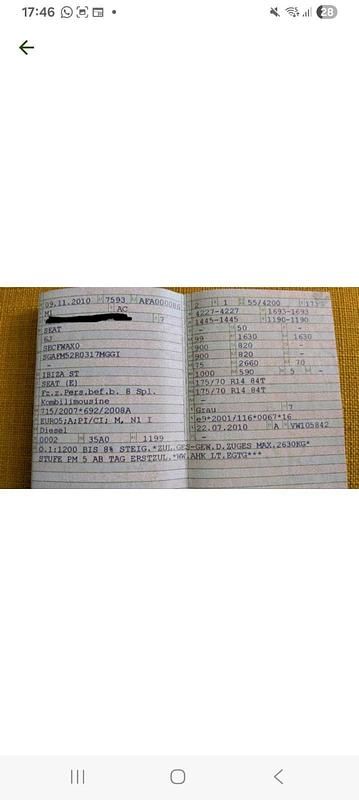 17:46
28
09.11.2010 7593 AFA000086
M1 AC
7
SEAT
6J
SECFWAX0
SGAFM52R0317MGGI
-
IBIZA ST
SEAT (E)
Fz.z.Pers.bef.b. 8 Spl.
Kombilimousine
715/2007*692/2008A
EURO5;A;PI/CI; M, N1 I
Diesel
0002 35A0 1199
2 1 55/4200 173
4227-4227 1693-1693
1445-1445 1190-1190
- 50 -
99 1630 1630
900 820 -
900 820 -
75 2660 70
1000 590 5 -
175/70 R14 84T
175/70 R14 84T
-
Grau 7
e9*2001/116*0067*16
22.07.2010 A VW105842
-
0.1:1200 BIS 8% STEIG.*ZUL.GES-GEW.D.ZUGES MAX.2630KG*
STUFE PM 5 AB TAG ERSTZUL.*WW.AHK LT.EGTG***